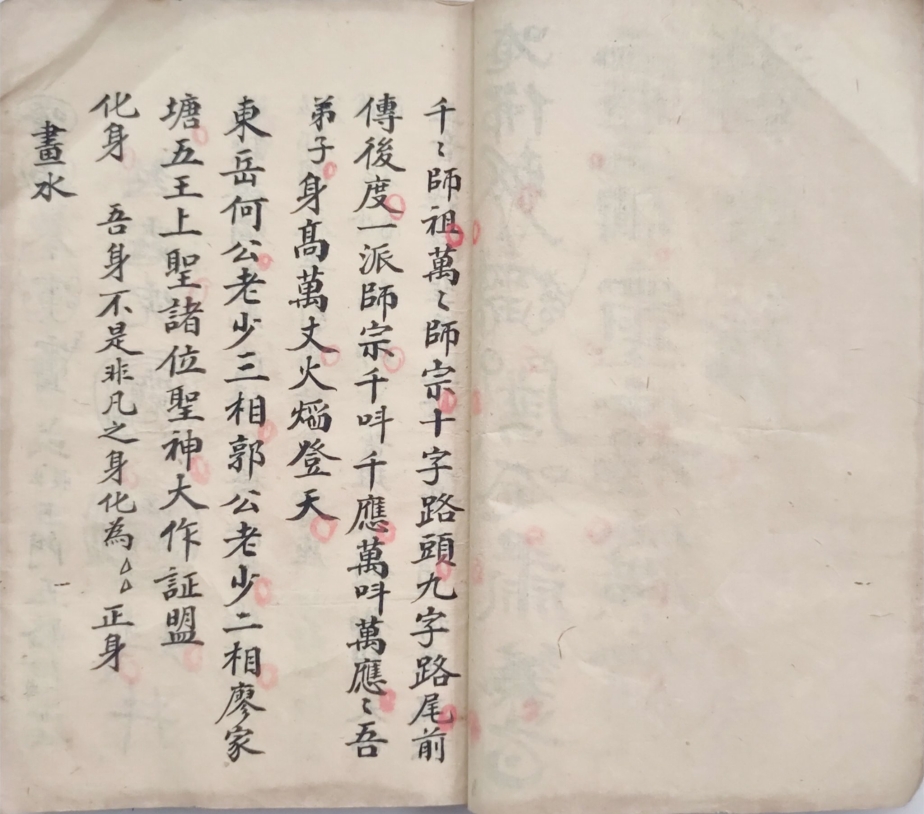 千〻師祖萬〻師宗十字路頭九字路尾前
傳後度一派師宗千叫千應萬叫萬應〻吾
弟子身髙萬丈火焰登天
東岳何公老少三相郭公老少二相廖家
塘五王上聖諸位聖神大作証盟
化身　吾身不是非凡之身化為ㄙㄙ正身
畫水